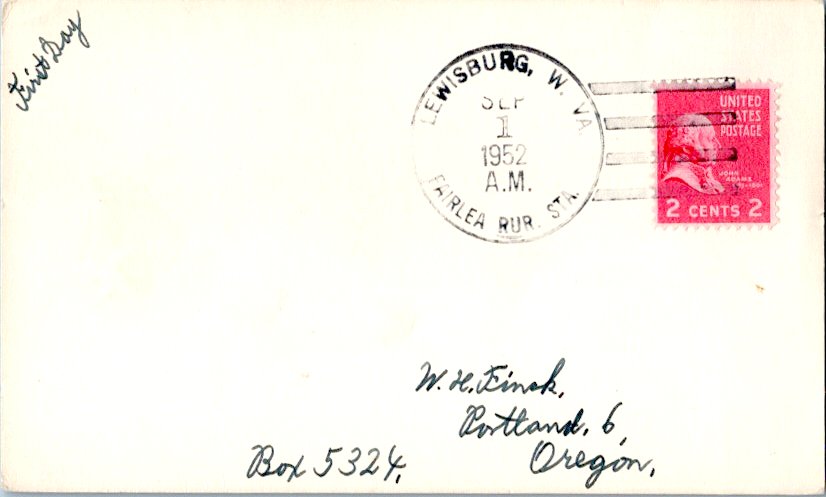 First Day
LEWISBURG, W. VA.
SEP
1
1952
A.M.
FAIRLEA RUR. STA.
UNITED
STATES
POSTAGE
JOHN
ADAMS
2 CENTS 2
W. H. Finck,
Portland, 6,
Oregon,
Box 5324,